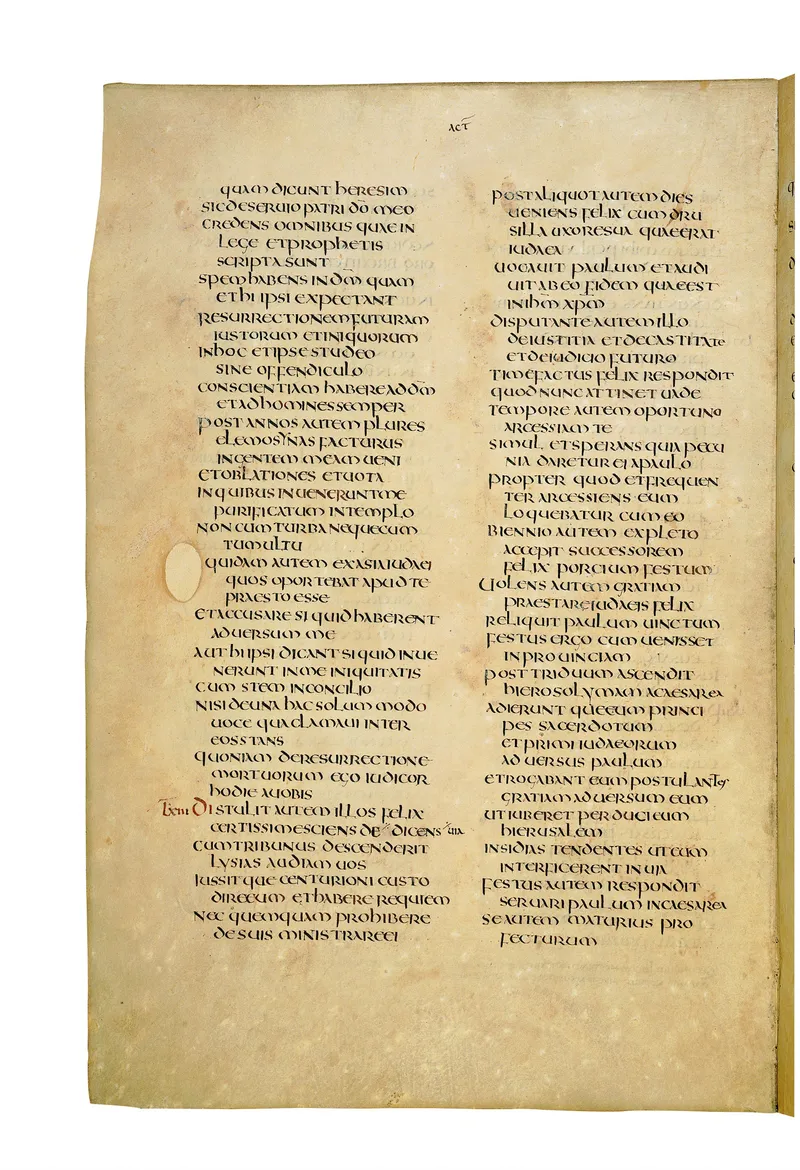 ACT
quam dicunt heresim
sic deseruio patri dō meo
credens omnibus quae in
lege et prophetis
scripta sunt
spem habens in dm̄ quam
et hi ipsi expectant
resurrectionem futuram
iustorum et iniquorum
in hoc et ipse studeo
sine offendiculo
conscientiam habere ad dm̄
et ad homines semper
post annos autem plures
elemosynas facturus
in gentem meam ueni
et oblationes et uota
in quibus inuenerunt me
purificatum in templo
non cum turba neque cum
tumultu
quidam autem ex asia iudaei
quos oportebat apud te
praesto esse
et accusare si quid haberent
aduersum me
aut hi ipsi dicant si quid inue
nerunt in me iniquitatis
cum stem in concilio
nisi de una hac solum modo
uoce qua clamaui inter
eos stans
quoniam de resurrectione
mortuorum ego iudicor
hodie a uobis
distulit autem illos felix
certissime sciens de dicens uia
cum tribunus descenderit
lysias audiam uos
iussitque centurioni custo
dire eum et habere requiem
nec quemquam prohibere
de suis ministrare ei
post aliquot autem dies
ueniens felix cum dru
silla uxore sua quae erat
iudaea
uocauit paulum et audi
uit ab eo fidem quae est
in ihm̄ xpm̄
disputante autem illo
de iustitia et de castitate
et de iudicio futuro
timefactus felix respondit
quod nunc attinet uade
tempore autem oportuno
arcessiam te
simul et sperans quia pecu
nia daretur ei a paulo
propter quod et frequen
ter arcessiens eum
loquebatur cum eo
biennio autem expleto
accepit successorem
felix porcium festum
uolens autem gratiam
praestare iudaeis felix
reliquit paulum uinctum
festus ergo cum uenisset
in prouinciam
post triduum ascendit
hierosolymam a caesarea
adierunt que eum princi
pes sacerdotum
et primi iudaeorum
aduersus paulum
et rogabant eum postulantes
gratiam aduersum eum
ut iuberet perduci eum
hierusalem
insidias tendentes ut eum
interficerent in uia
festus autem respondit
seruari paulum in caesarea
se autem maturius pro
fecturum